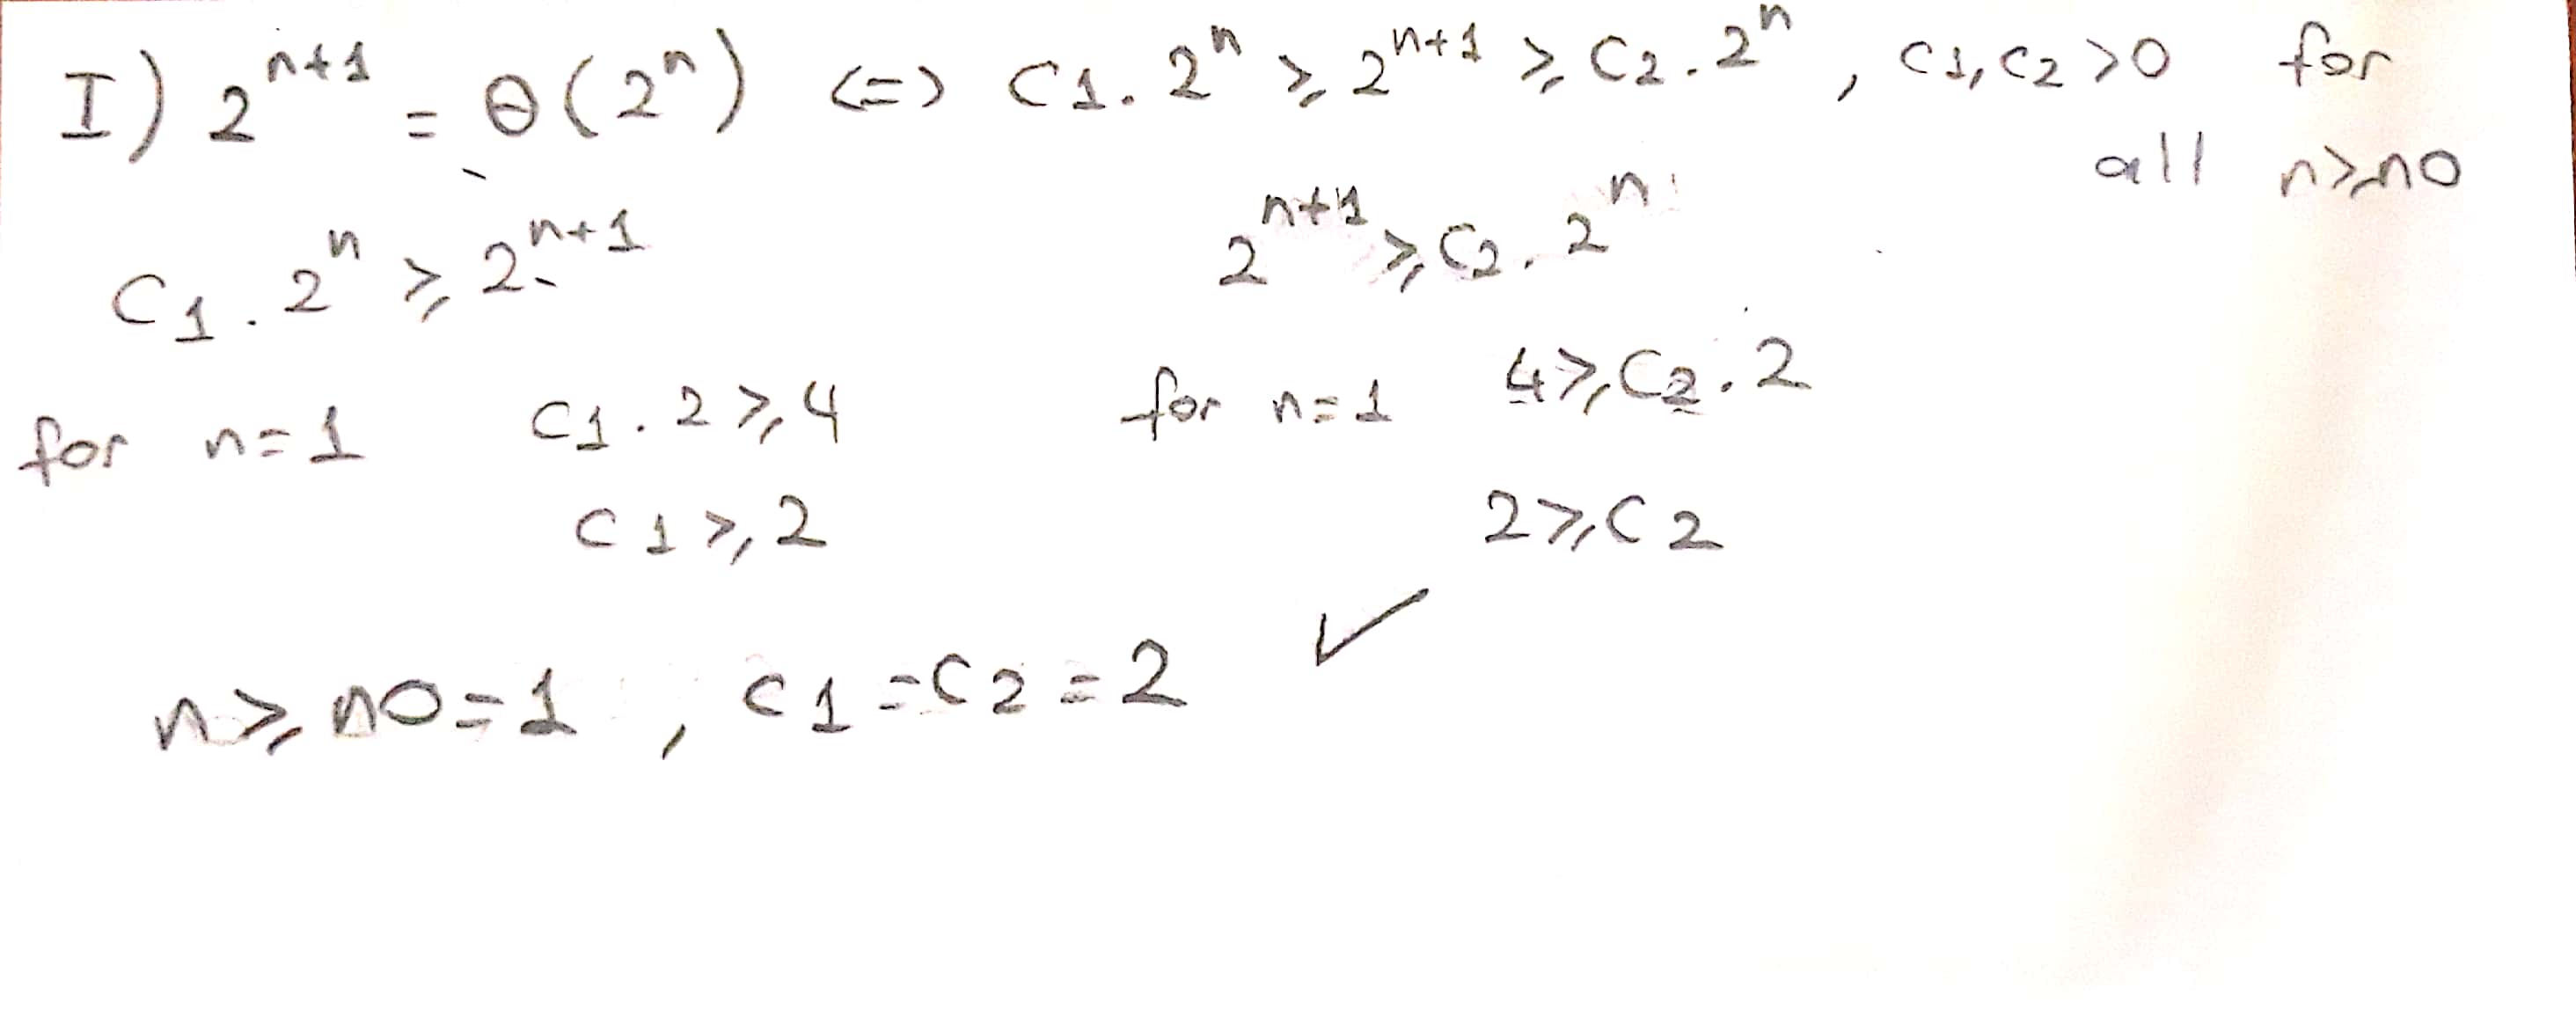 I) 2^{n+1} = θ(2^n) <=> C1. 2^n ≥ 2^{n+1} ≥ C2. 2^n , C1, C2 >0 for
all n≥n0
C1. 2^n ≥ 2^{n+1} 2^{n+1} ≥ C2. 2^n
for n=1 C1. 2 ≥ 4 for n=1 4 ≥ C2. 2
C1 ≥ 2 2 ≥ C2
n ≥ n0=1 , C1=C2=2 ✓